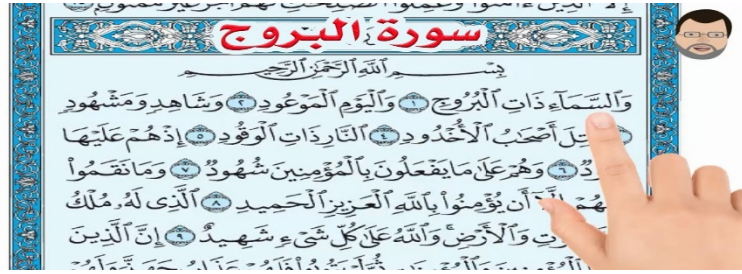 إِلَّا ٱلَّذِينَ ءَامَنُوا۟ وَعَمِلُوا۟ ٱلصَّٰلِحَٰتِ لَهُمْ أَجْرٌ غَيْرُ مَمْنُونٍۭ
سورة البروج
بِسْمِ ٱللَّهِ ٱلرَّحْمَٰنِ ٱلرَّحِيمِ
وَٱلسَّمَآءِ ذَاتِ ٱلْبُرُوجِ ١ وَٱلْيَوْمِ ٱلْمَوْعُودِ ٢ وَشَاهِدٍ وَمَشْهُودٍ
أَصْحَٰبُ ٱلْأُخْدُودِ ٤ ٱلنَّارِ ذَاتِ ٱلْوَقُودِ ٥ إِذْ هُمْ عَلَيْهَا
٦ وَهُمْ عَلَىٰ مَا يَفْعَلُونَ بِٱلْمُؤْمِنِينَ شُهُودٌ ٧ وَمَا نَقَمُوا۟
أَن يُؤْمِنُوا۟ بِٱللَّهِ ٱلْعَزِيزِ ٱلْحَمِيدِ ٨ ٱلَّذِى لَهُۥ مُلْكُ
وَٱلْأَرْضِ ۚ وَٱللَّهُ عَلَىٰ كُلِّ شَىْءٍ شَهِيدٌ ٩ إِنَّ ٱلَّذِينَ